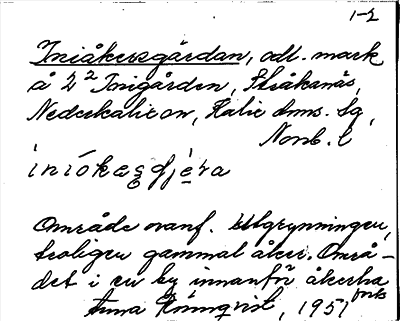 1-2
Iniåkersgärdan, odl. mark
å 2² Inigården, Stråkanäs,
Nederkalix sn, Kalix dnms. sg,
Norrb. l
iniókeʂɡjæra
Område ovanf. Utgrynningen,
troligen gammal åker. Områ-
det i en by innanför åkerha
Anna Rönnqvist, 1951